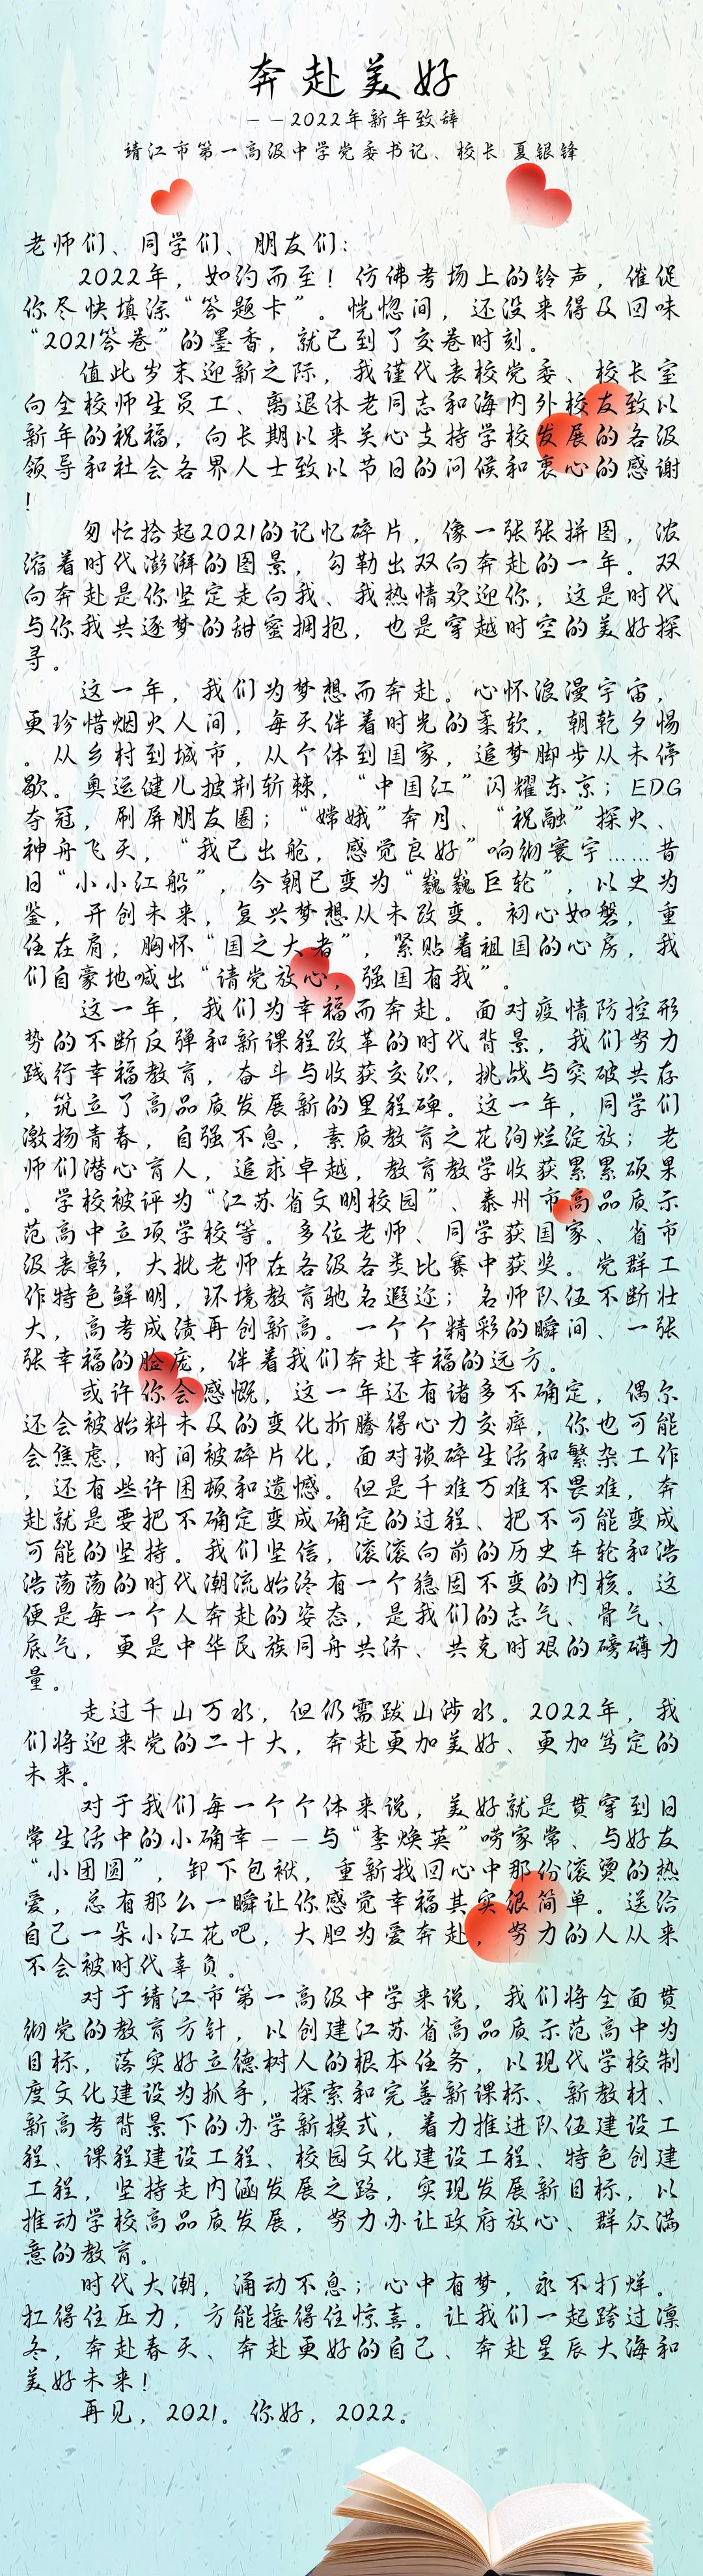 奔赴美好
——2022年新年致辞
靖江市第一高级中学党委书记、校长 夏银锋
老师们、同学们、朋友们：
2022年，如约而至！仿佛考场上的铃声，催促
你尽快填涂“答题卡”。恍惚间，还没来得及回味
“2021答卷”的墨香，就已到了交卷时刻。
值此岁末迎新之际，我谨代表校党委、校长室
向全校师生员工、离退休老同志和海内外校友致以
新年的祝福，向长期以来关心支持学校发展的各级
领导和社会各界人士致以节日的问候和衷心的感谢
！
匆忙拾起2021的记忆碎片，像一张张拼图，浓
缩着时代澎湃的图景，勾勒出双向奔赴的一年。双
向奔赴是你坚定走向我、我热情欢迎你，这是时代
与你我共逐梦的甜蜜拥抱，也是穿越时空的美好探
寻。
这一年，我们为梦想而奔赴。心怀浪漫宇宙，
更珍惜烟火人间，每天伴着时光的柔软，朝乾夕惕
。从乡村到城市，从个体到国家，追梦脚步从未停
歇。奥运健儿披荆斩棘，“中国红”闪耀东京；EDG
夺冠，刷屏朋友圈；“嫦娥”奔月、“祝融”探火、
神舟飞天，“我已出舱，感觉良好”响彻寰宇……昔
日“小小红船”，今朝已变为“巍巍巨轮”，以史为
鉴，开创未来，复兴梦想从未改变。初心如磐，重
任在肩，胸怀“国之大者”，紧贴着祖国的心房，我
们自豪地喊出“请党放心，强国有我”。
这一年，我们为幸福而奔赴。面对疫情防控形
势的不断反弹和新课程改革的时代背景，我们努力
践行幸福教育，奋斗与收获交织，挑战与突破共存
，筑立了高品质发展新的里程碑。这一年，同学们
激扬青春，自强不息，素质教育之花绚烂淀放；老
师们潜心育人，追求卓越，教育教学收获累累硕果
。学校被评为“江苏省文明校园”、泰州市高品质示
范高中立项学校等。多位老师、同学获国家、省市
级表彰，大批老师在各级各类比赛中获奖。党群工
作特色鲜明，环境教育驰名遐迩；名师队伍不断壮
大，高考成绩再创新高。一个个精彩的瞬间、一张
张幸福的脸庞，伴着我们奔赴幸福的远方。
或许你会感慨，这一年还有诸多不确定，偶尔
还会被始料未及的变化折腾得心力交瘁，你也可能
会焦虑，时间被碎片化，面对琐碎生活和繁杂工作
，还有些许困顿和遗憾。但是千难万难不畏难，奔
赴就是要把不确定变成确定的过程、把不可能变成
可能的坚持。我们坚信，滚滚向前的历史车轮和浩
浩荡荡的时代潮流始终有一个稳固不变的内核。这
便是每一个人奔赴的姿态，是我们的志气、骨气、
底气，更是中华民族同舟共济、共克时艰的磅礴力
量。
走过千山万水，但仍需跋山涉水。2022年，我
们将迎来党的二十大，奔赴更加美好、更加笃定的
未来。
对于我们每一个个体来说，美好就是贯穿到日
常生活中的小确幸——与“李焕英”唠家常、与好友
“小团圆”，卸下包袱，重新找回心中那份滚烫的热
爱，总有那么一瞬让你感觉幸福其实很简单。送给
自己一朵小红花吧，大胆为爱奔赴，努力的人从来
不会被时代辜负。
对于靖江市第一高级中学来说，我们将全面贯
彻党的教育方针，以创建江苏省高品质示范高中为
目标，落实好立德树人的根本任务，以现代学校制
度文化建设为抓手，探索和完善新课标、新教材、
新高考背景下的办学新模式，着力推进队伍建设工
程、课程建设工程、校园文化建设工程、特色创建
工程，坚持走内涵发展之路，实现发展新目标，以
推动学校高品质发展，努力办让政府放心、群众满
意的教育。
时代大潮，涌动不息；心中有梦，永不打烊。
扛得住压力，方能接得住惊喜。让我们一起跨过凛
冬，奔赴春天、奔赴更好的自己、奔赴星辰大海和
美好未来！
再见，2021。你好，2022。